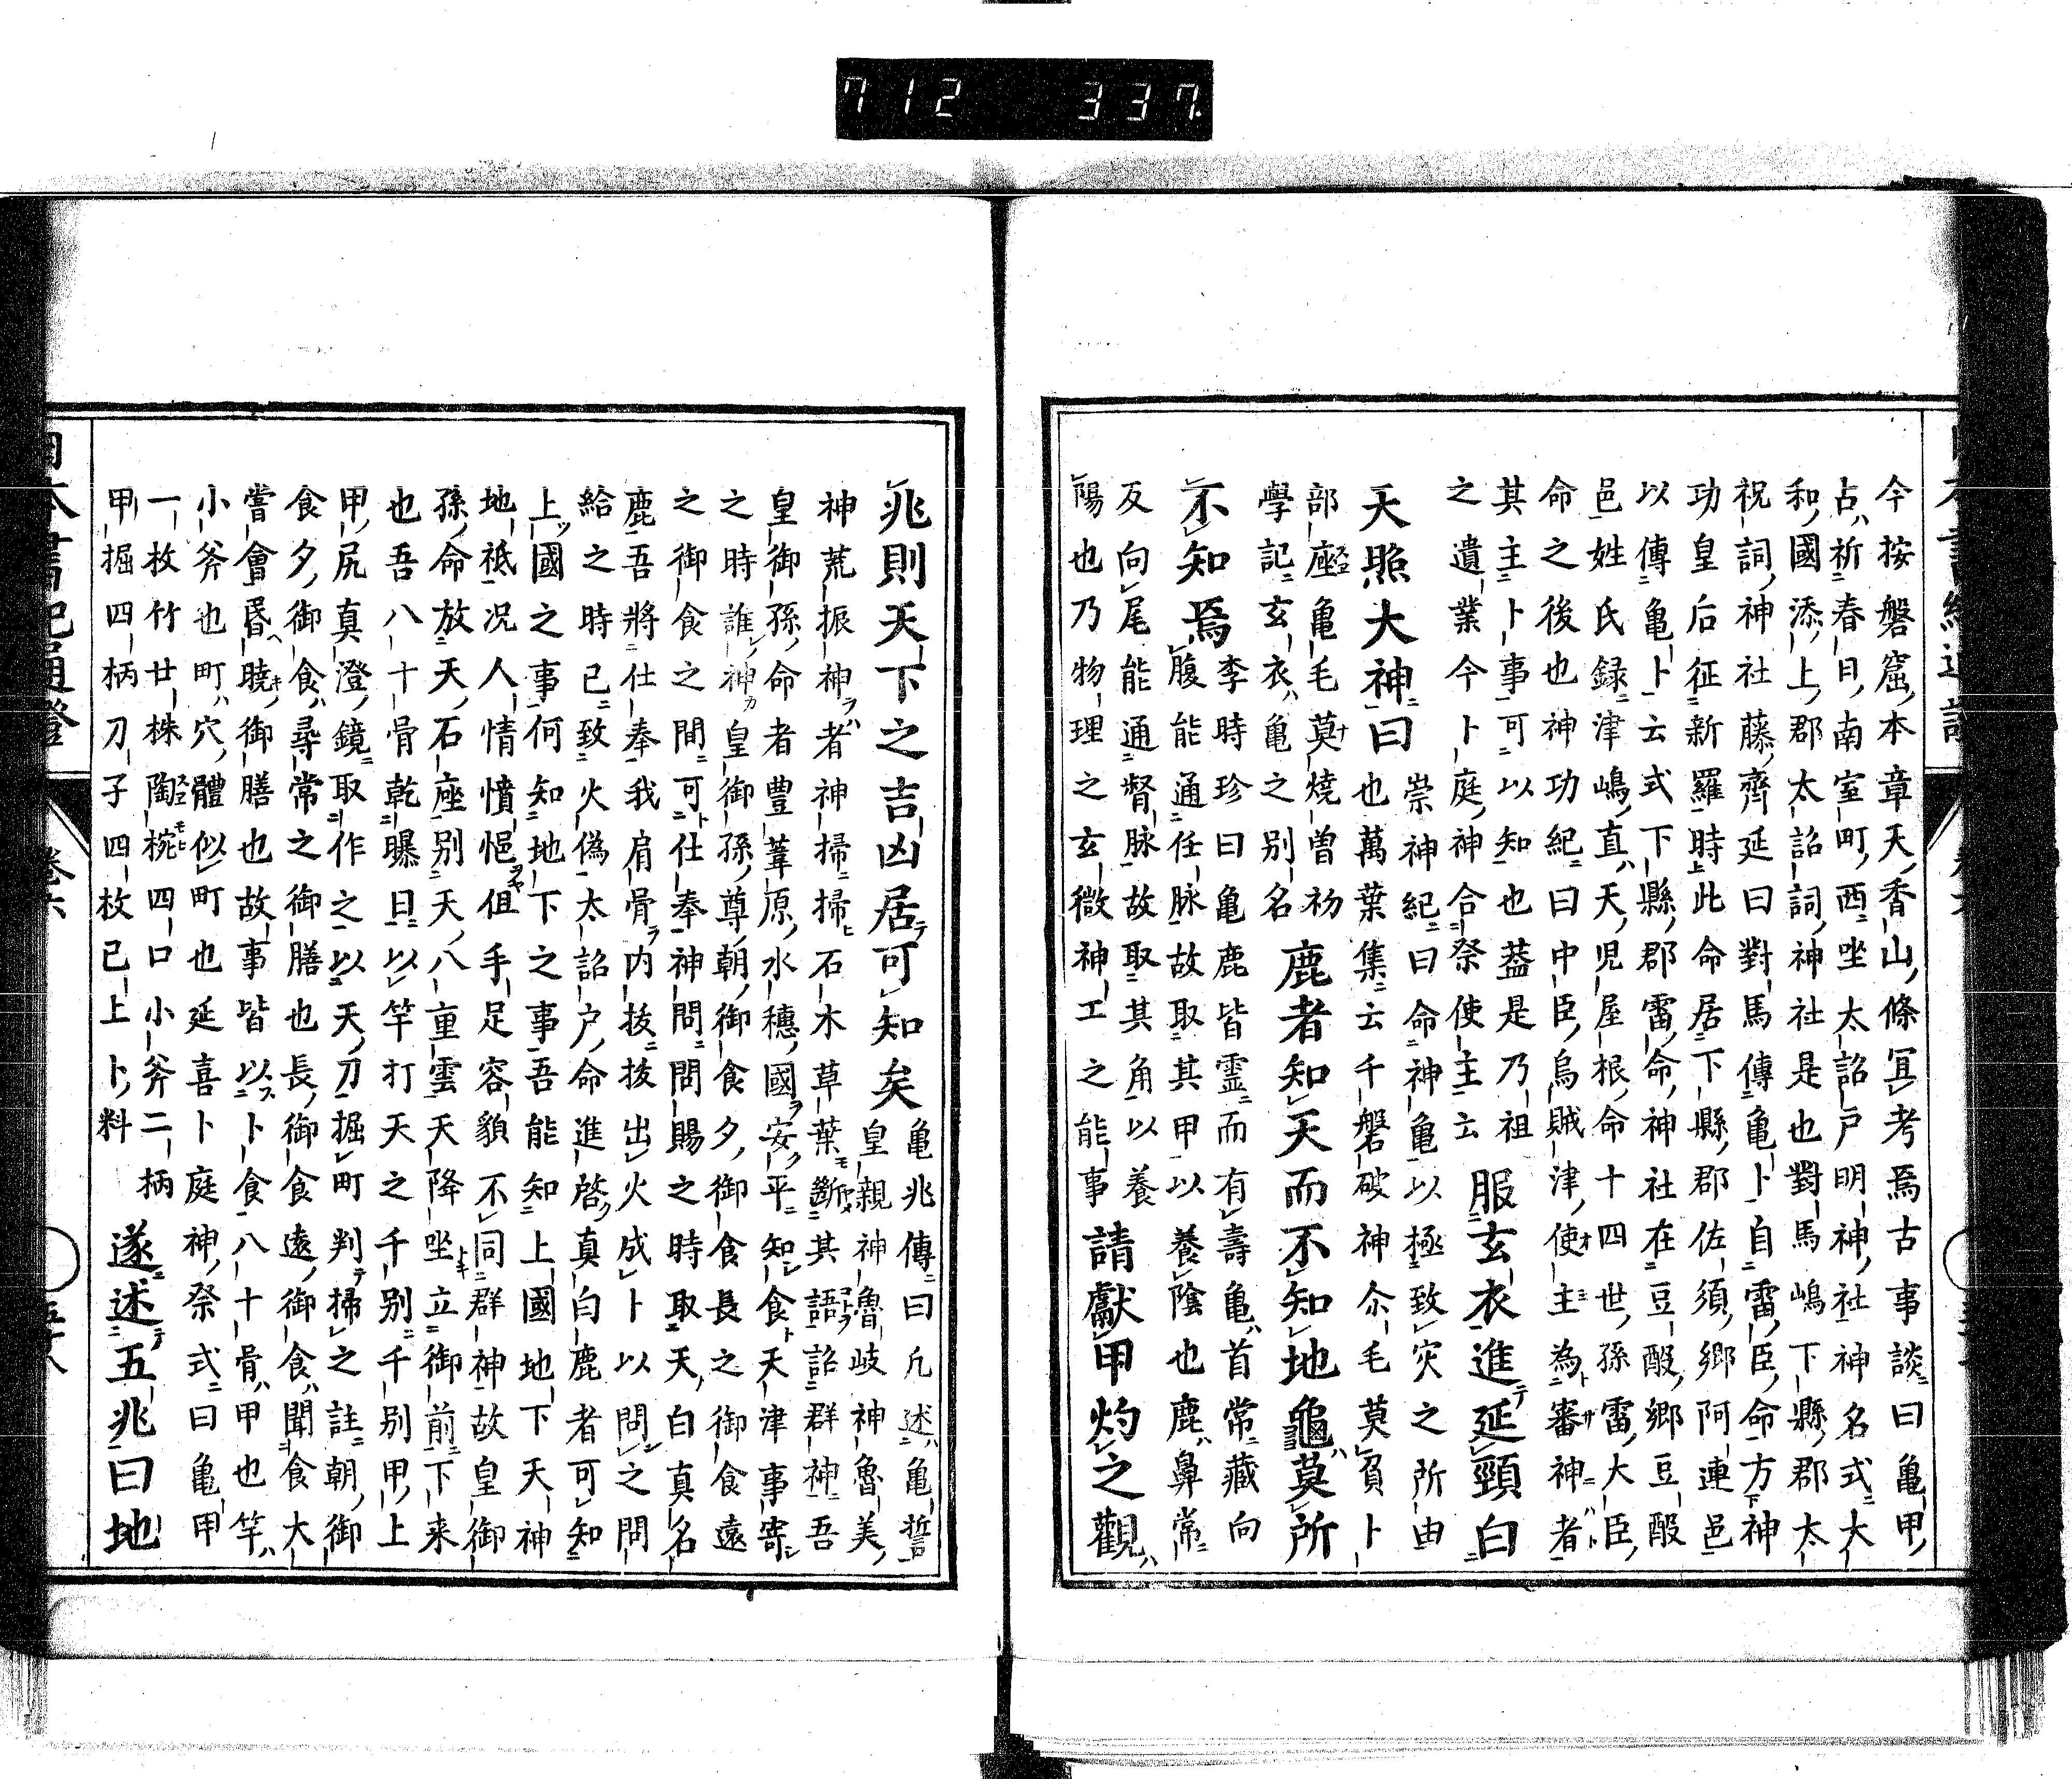 712 337
今按磐窟本章天香山條冝考焉古事談曰亀甲
占祈春日南室町西坐太詔戸明神社神名式大
和國添上郡太詔詞神社是也對馬嶋下縣郡太
祝詞神社藤齊延曰對馬傳亀卜自雷臣命方神
功皇后征新羅時此命居下縣郡佐須郷阿連邑
以傳亀卜云式下縣郡雷命神社在豆酘郷豆酘
邑姓氏録津嶋直天児屋根命十四世孫雷大臣
命之後也神功紀曰中臣烏賊津使主為審神者
其主卜事可以知也蓋是乃祖
之遺業今卜庭神合祭使主云
服玄衣進延頸白
天照大神曰
崇神紀曰命神亀以極致灾之所由
也萬葉集云千磐破神尒毛莫負卜
部座亀毛莫燒曽初
學記玄衣亀之别名
鹿者知天而不知地龜莫所
不知焉
李時珍曰亀鹿皆靈而有壽亀首常藏向
腹能通任脉故取其甲以養陰也鹿鼻常
反向尾能通督脉故取其角以養
陽也乃物理之玄微神工之能事
請獻甲灼之觀
兆則天下之吉凶居可知矣
亀兆傳曰凢述亀誓
皇親神魯岐神魯美
神荒振神者神掃掃石木草葉斷其語詔群神吾
皇御孫命者豊葦原水穗國安平知食天津事寄
之時誰神皇御孫尊朝御食夕御食長之御食遠
之御食之間可仕奉神問問賜之時取天白真名
鹿吾將仕奉我肩骨内抜抜出火成卜以問之問
給之時已致火偽太詔戸命進啓真白鹿者可知
上國之事何知地下之事吾能知上國地下天神
地祇况人情憤悒但手足容貌不同群神故皇御
孫命放天石座别天八重雲天降坐立御前下来
也吾八十骨乾曝日以竿打天之千别千别甲上
甲尻真澄鏡取作之以天刀掘町判掃之註朝御
食夕御食尋常之御膳也長御食遠御食聞食大
嘗會昏曉御膳也故事皆以卜食八十骨甲也竿
小斧也町穴體似町也延喜卜庭神祭式曰亀甲
一枚竹廿株陶椀四口小斧二柄
甲掘四柄刀子四枚已上卜料
遂述五兆曰地
日本書紀通證
卷六